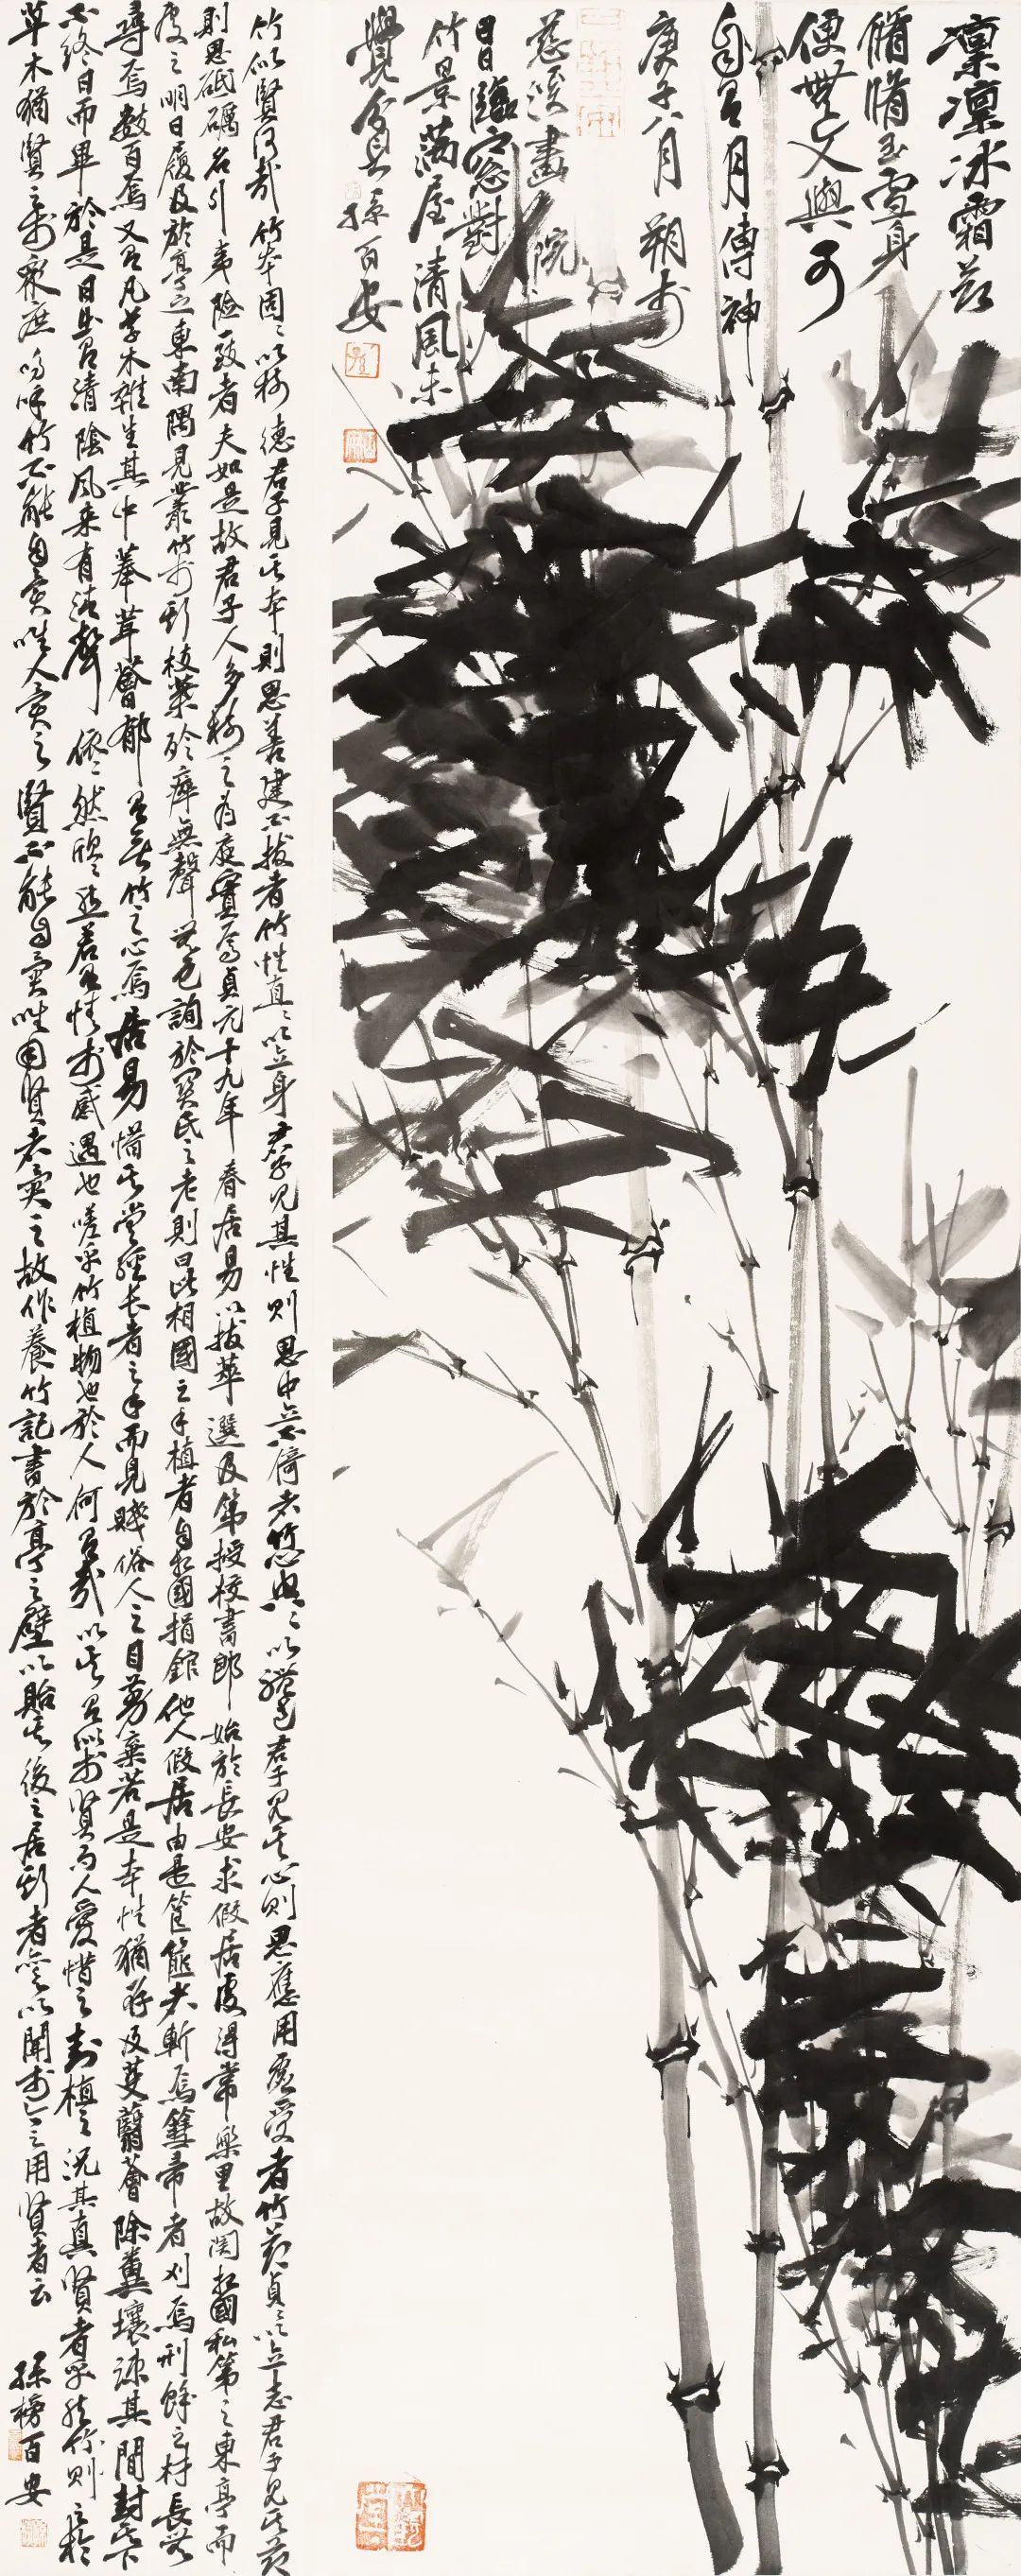 凛凛冰霜節
脩脩玉雪身
便無文與可
自有月傳神
庚子八月朔於
慈溪畫院
日日臨窗對
竹景滿屋清風未
覺貧 孫百安
竹似賢何哉竹本固固以樹德君子見其本則思善建不拔者竹性直直以立身君子見其性則思中立不倚者竹心空空以體道君子見其心則思應用虛受者竹節貞貞以立志君子見其節
則思砥礪名行夷險一致者夫如是故君子人多樹之為庭實焉貞元十九年春居易以拔萃選及第授校書郎始於長安求假居處得常樂里故関相國私第之東亭而
處之明日履及於亭之東南隅見叢竹於斯枝葉殄瘁無聲無色詢於関氏之老則曰此相國之手植者自相國捐館他人假居由是筐篚者斬焉篲帚者刈焉刑餘之材長無
尋焉數百焉又有凡草木雜生其中菶茸薈郁有無竹之心焉居易惜其嘗經長者之手而見賤俗人之目翦棄若是本性猶存乃芟蘙薈除糞壤疎其間封其下
不終日而畢於是日出有清陰風來有清聲依依然欣欣然若有情於感遇也嗟乎竹植物也於人何有哉以其有似於賢而人愛惜之封植之況其真賢者乎然竹則之於
草木猶賢之於衆庶嗚呼竹不能自異唯人異之賢不能自異唯用賢者異之故作養竹記書於亭之壁以貽其後之居斯者亦以聞於今之用賢者云 孫榜百安